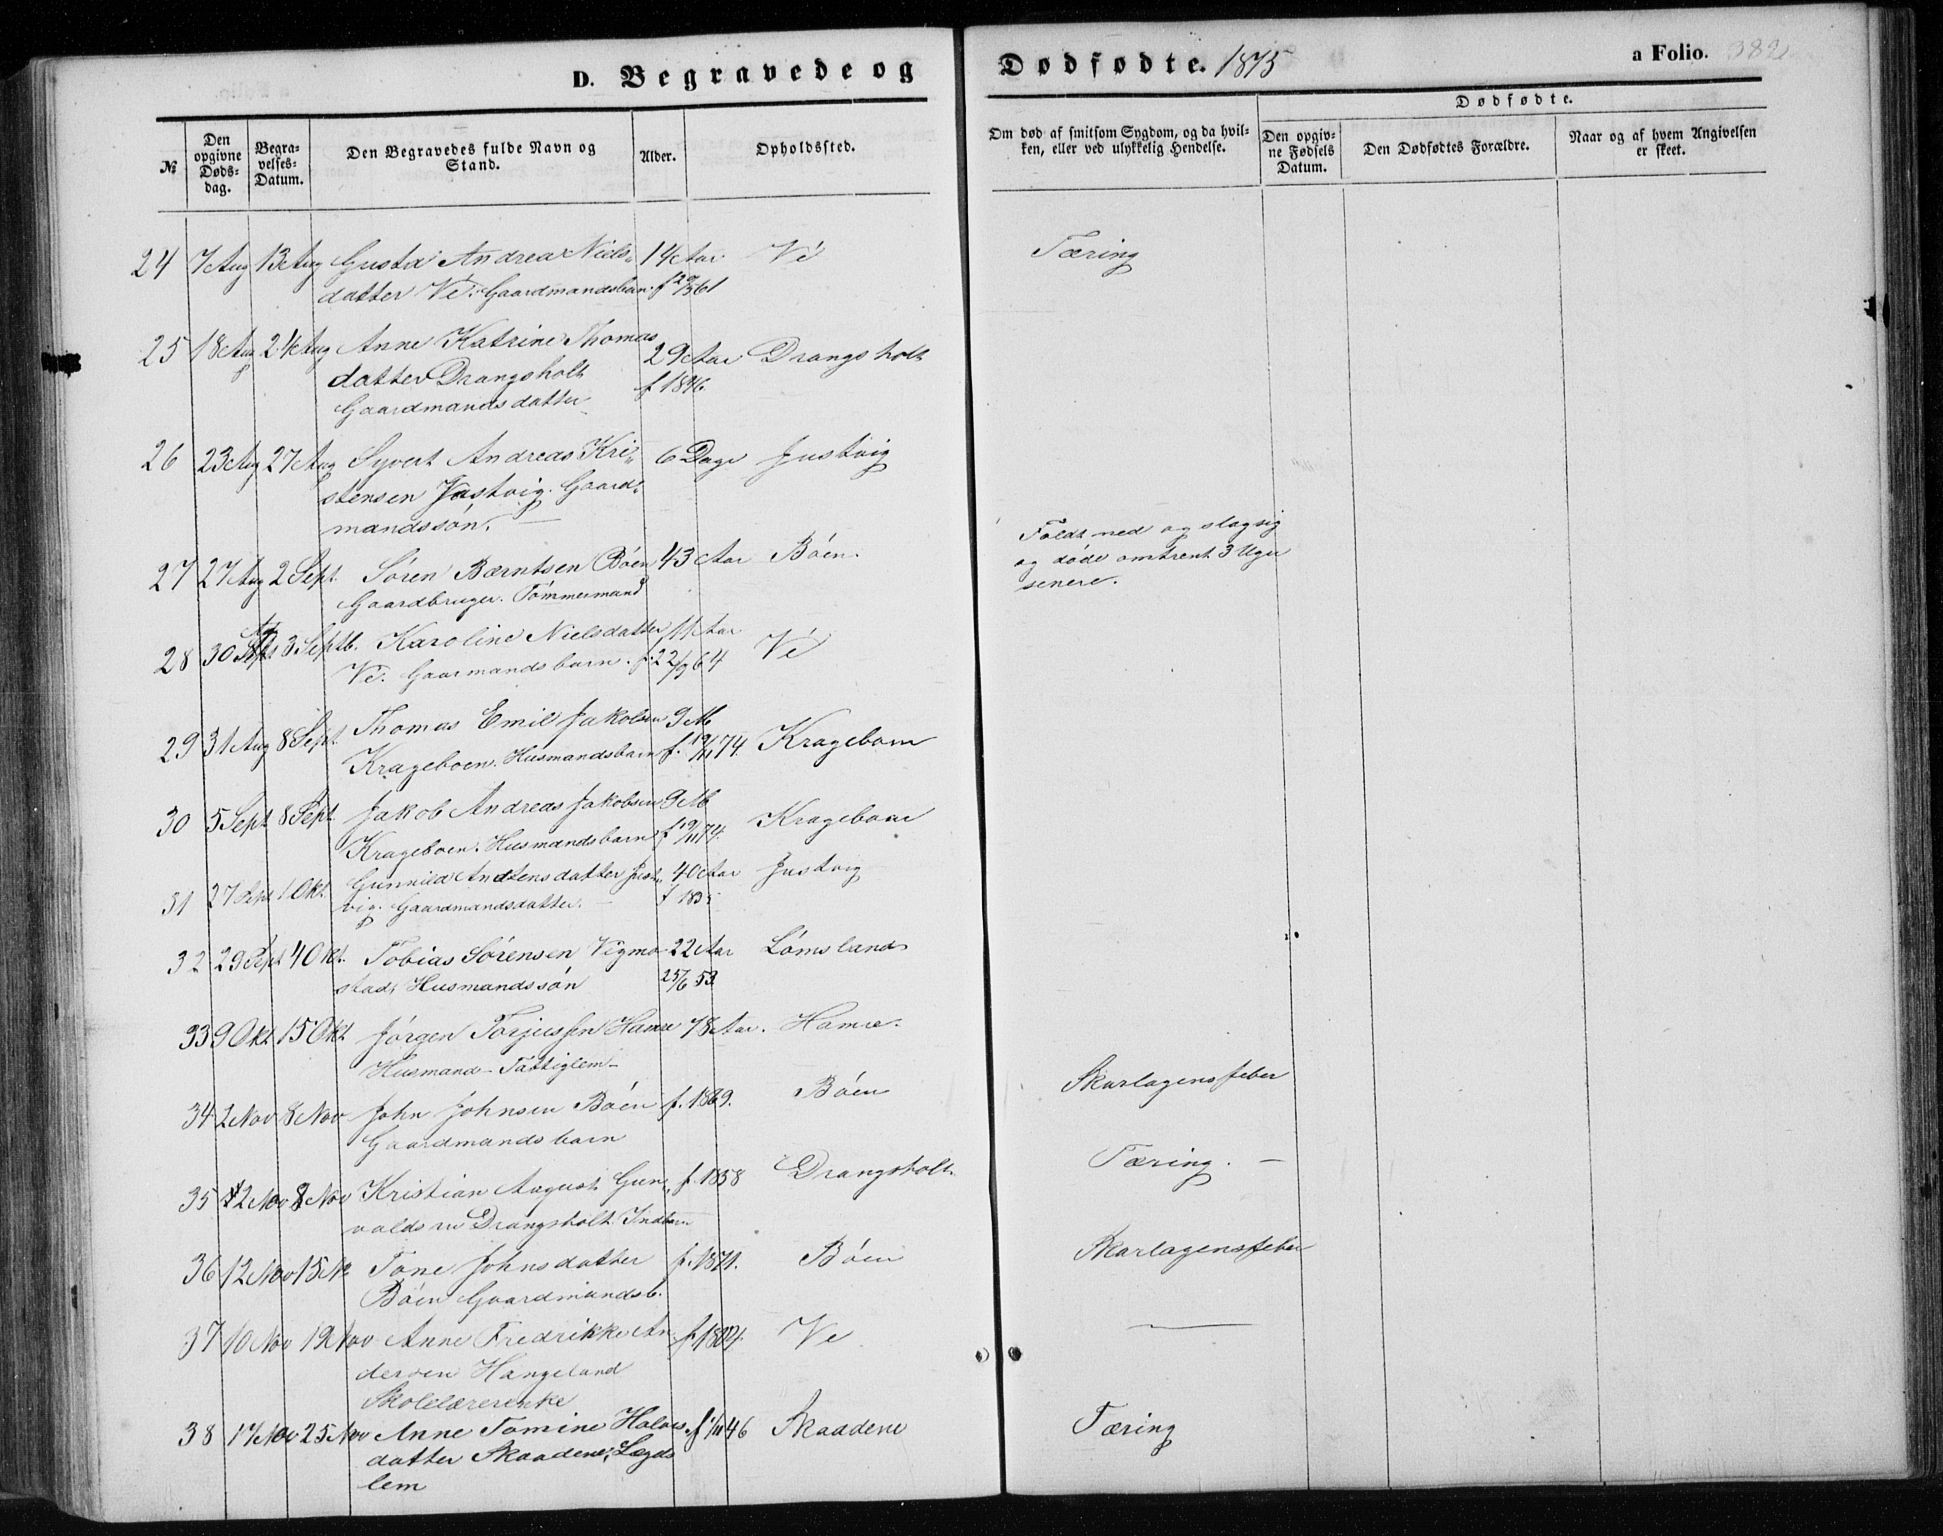 D. Begravede og Dødfødte. 1875 a Folio. 382
Dødfødte.
№ Den opgivne Dødsdag. Begravelses-Datum. Den Begravedes fulde Navn og Stand. Alder. Opholdssted. Om død af smitsom Sygdom, og da hvilken, eller ved ulykkelig Hendelse. Den opgivne Fødsels Datum. Den Dødfødtes Forældre. Naar og af hvem Angivelsen er skeet.
24 7 Aug 13 Aug Gusta Andrea Niels- 14 Aar Vé Tæring
datter Vé. Gaardmandsbarn f 61
25 18 Aug 24 Aug Anne Katrine Thomas 29 Aar Drangsholt
datter Drangsholt f 1846.
Gaardmandsdatter
26 23 Aug 27 Aug Syvert Andreas Kri- 6 Dage Justvig
stensen Justvig. Gaard-
mandssøn.
27 27 Aug 2 Sept. Søren Bærntsen Bøen 43 Aar Bøen. Faldt ned og slog sig
Gaardbruger. Tømmermand og døde omtrent 3 Uger
senere.
28 30 Aug 3 Septb. Karoline Nielsdatter 11 Aar Vé
Vé. Gaarmandsbarn. f. 22/9 64
29 31 Aug 8 Sept. Thomas Emil Jakobsen 9 M Krageboen
Krageboen. Husmandsbarn f. 19/11 74.
30 5 Sept 8 Sept. Jakob Andreas Jakobsen 9 M. Krageboen
Krageboen. Husmandsbarn f 19/11 74.
31 27 Sept 1 Okt. Gunnild datter Just- 40 Aar Justvig
vig. Gaardmandsdatter. f 1835
32 29 Sept 4 Okt. Tobias Sørensen Vigmo- 22 Aar Lømsland
stad, Husmandssøn 25/6 53
33 9 Okt 15 Okt Jørgen Torjussen Hamre 78 Aar. Hamre.
Husmand - Fattiglem -
34 2 Nov 8 Nov John Johnsen Bøen f. 1869. Bøen Skarlagensfeber
Gaardmandsbarn
35 2 Nov 8 Nov Kristian August Gun- f. 1858 Drangsholt Tæring. -
valdsen Drangsholt.
36 12 Nov 15 N Tone Johnsdatter f. 1871. Bøen Skarlagensfeber
Bøen Gaardmandsb.
37 10 Nov 19 Nov Anne Fredrikke An- f. 1804. Ve
dersen Hangeland
Skolelærerenke
38 17 Nov 25 Nov Anne Tomine Halvors- f 46 Skaadene Tæring
datter Skaadene, Lægds
lem